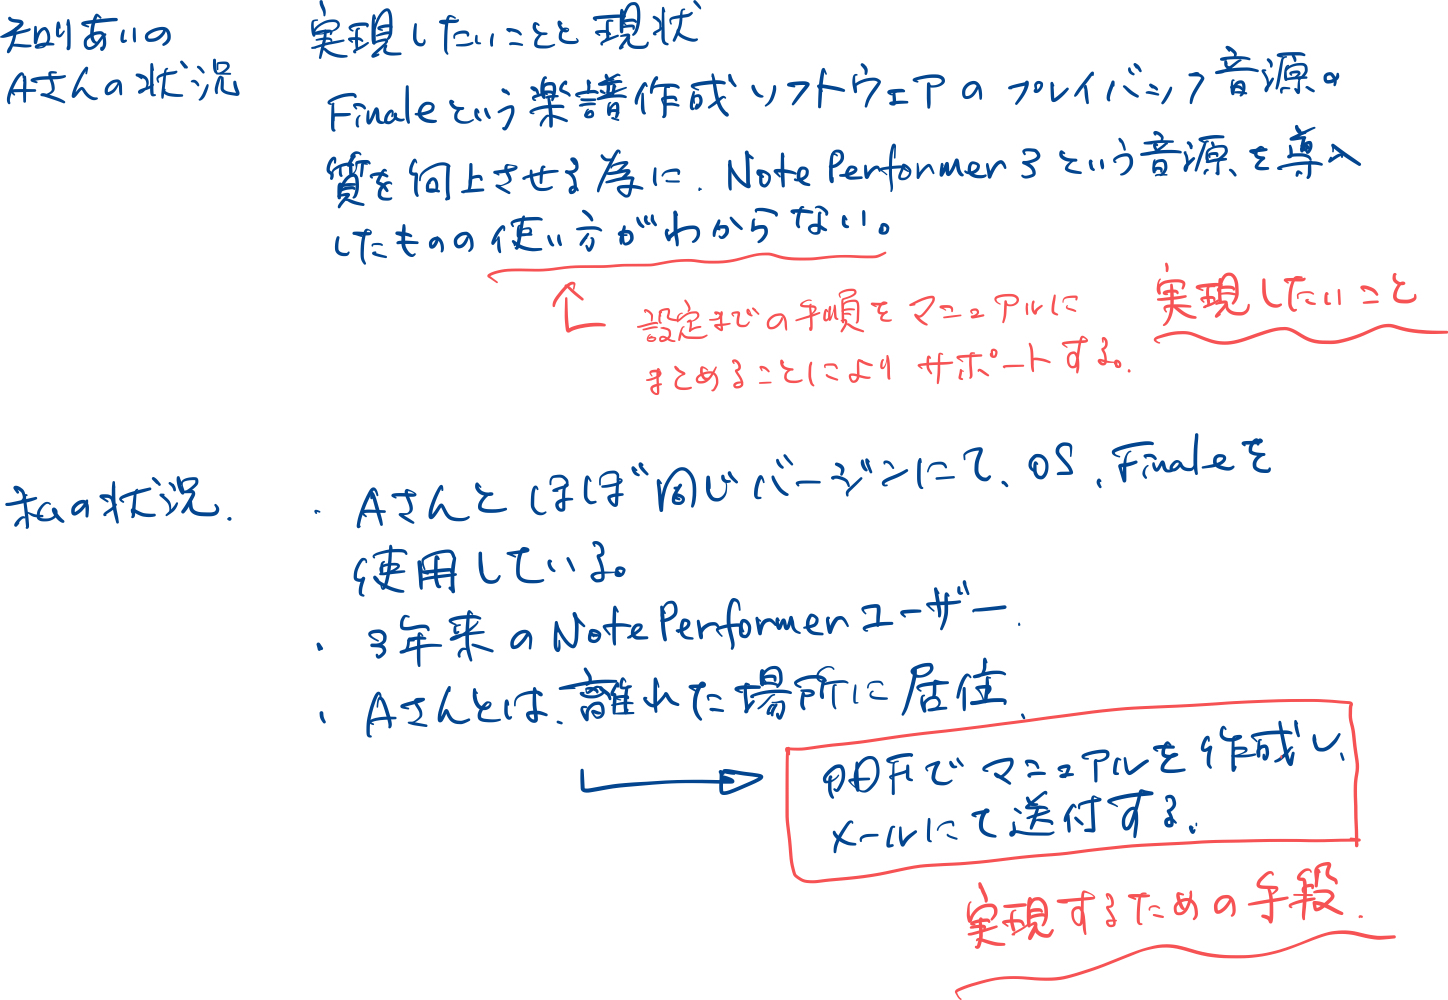 知りあいの
Aさんの状況
実現したいことと現状
Finaleという楽譜作成ソフトウェアのプレイバック音源の
質を向上させる為に、Note Performer 3という音源を導入
したものの使い方がわからない。
設定までの手順をマニュアルに
まとめることによりサポートする。
実現したいこと
私の状況.
・Aさんとほぼ同じバージンにて、OS、Finaleを
使用している。
・3年来のNotePerformerユーザー.
・Aさんとは、離れた場所に居住.
PDFでマニュアルを作成し、
メールにて送付する.
実現するための手段.